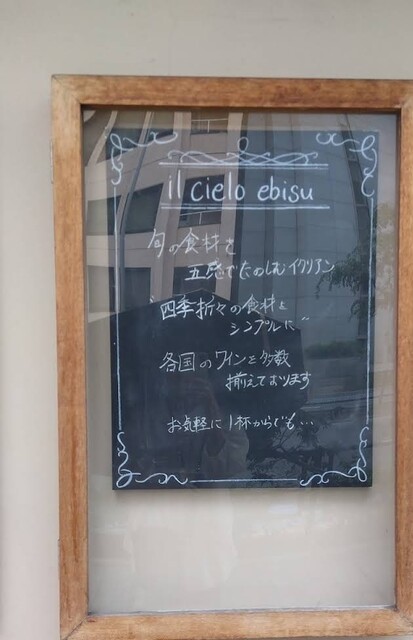 il cielo ebisu
旬の食材を
五感でたのしむイタリアン
"四季折々の食材を
シンプルに"
各国のワインを多数
揃えております
お気軽に1杯からでも…